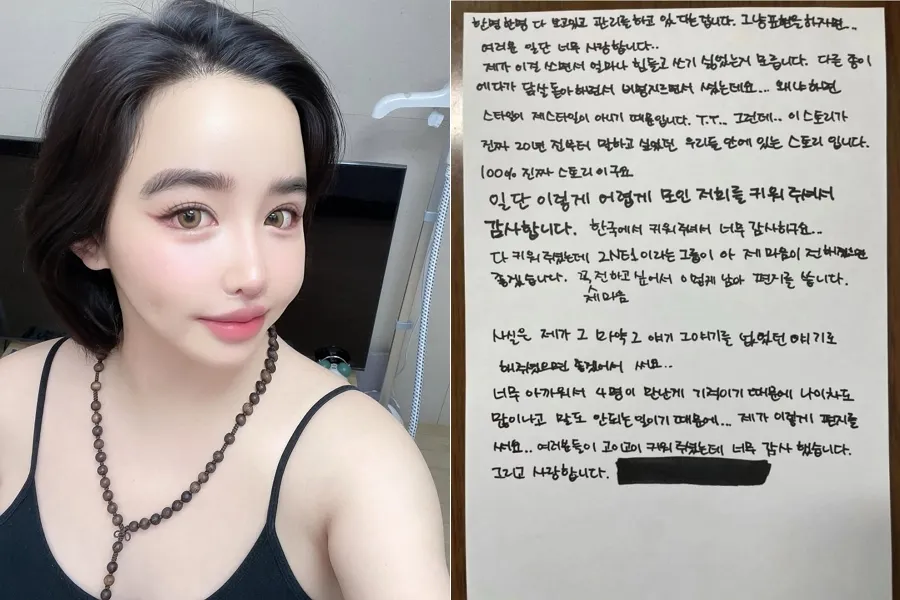 한명 한명 다 보고있고 관리를 하고 있다는 겁니다. 그냥 표현을 하자면...
여러분 일단 너무 사랑합니다..
제가 이걸 쓰면서 얼마나 힘들고 쓰기 싫었는지 모릅니다. 다른 종이
에다가 닭살 돋아 하면서 버럭지르면서 썼는데요... 왜냐하면
스타일이 제스타일이 아니기 때문입니다. T.T.. 그런데.. 이 스토리가
진짜 20번 전부터 말하고 싶었던 우리들 안에 있는 스토리 입니다.
100% 진짜 스토리 이구요
일단 이렇게 어렵게 모인 저희를 키워 주셔서
감사합니다. 한국에서 키워주셔서 너무 감사하구요...
다 키워주셨는데 2NE1이라는 그룹이 아 제 마음이 전해졌으면
좋겠습니다. 꼭 전하고 싶어서 이렇게 남아 편지를 씁니다.
제 마음
사실은 제가 그 마약 그 얘기 그 이야기를 없었던 얘기로
해주셨으면 좋겠어서 써요...
너무 아까워서 4명이 만난게 기적이기 때문에 나이차도
많이나고 말도 안되는 일이기 때문에... 제가 이렇게 편지를
써요.. 여러분들이 고이고이 키워 주셨는데 너무 감사 했습니다.
그리고 사랑합니다.